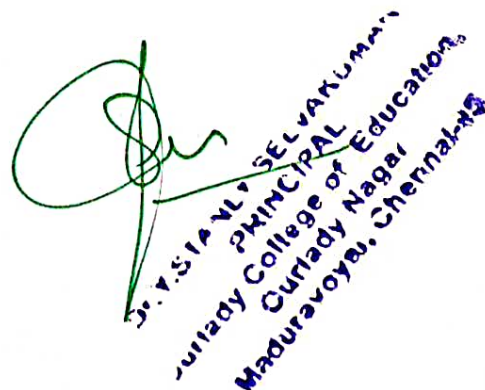 Dr.Y.STANLY SELVAKUMAR
PRINCIPAL
Curlady College of Education,
Curlady Nagar
Maduravoyal, Chennai-95